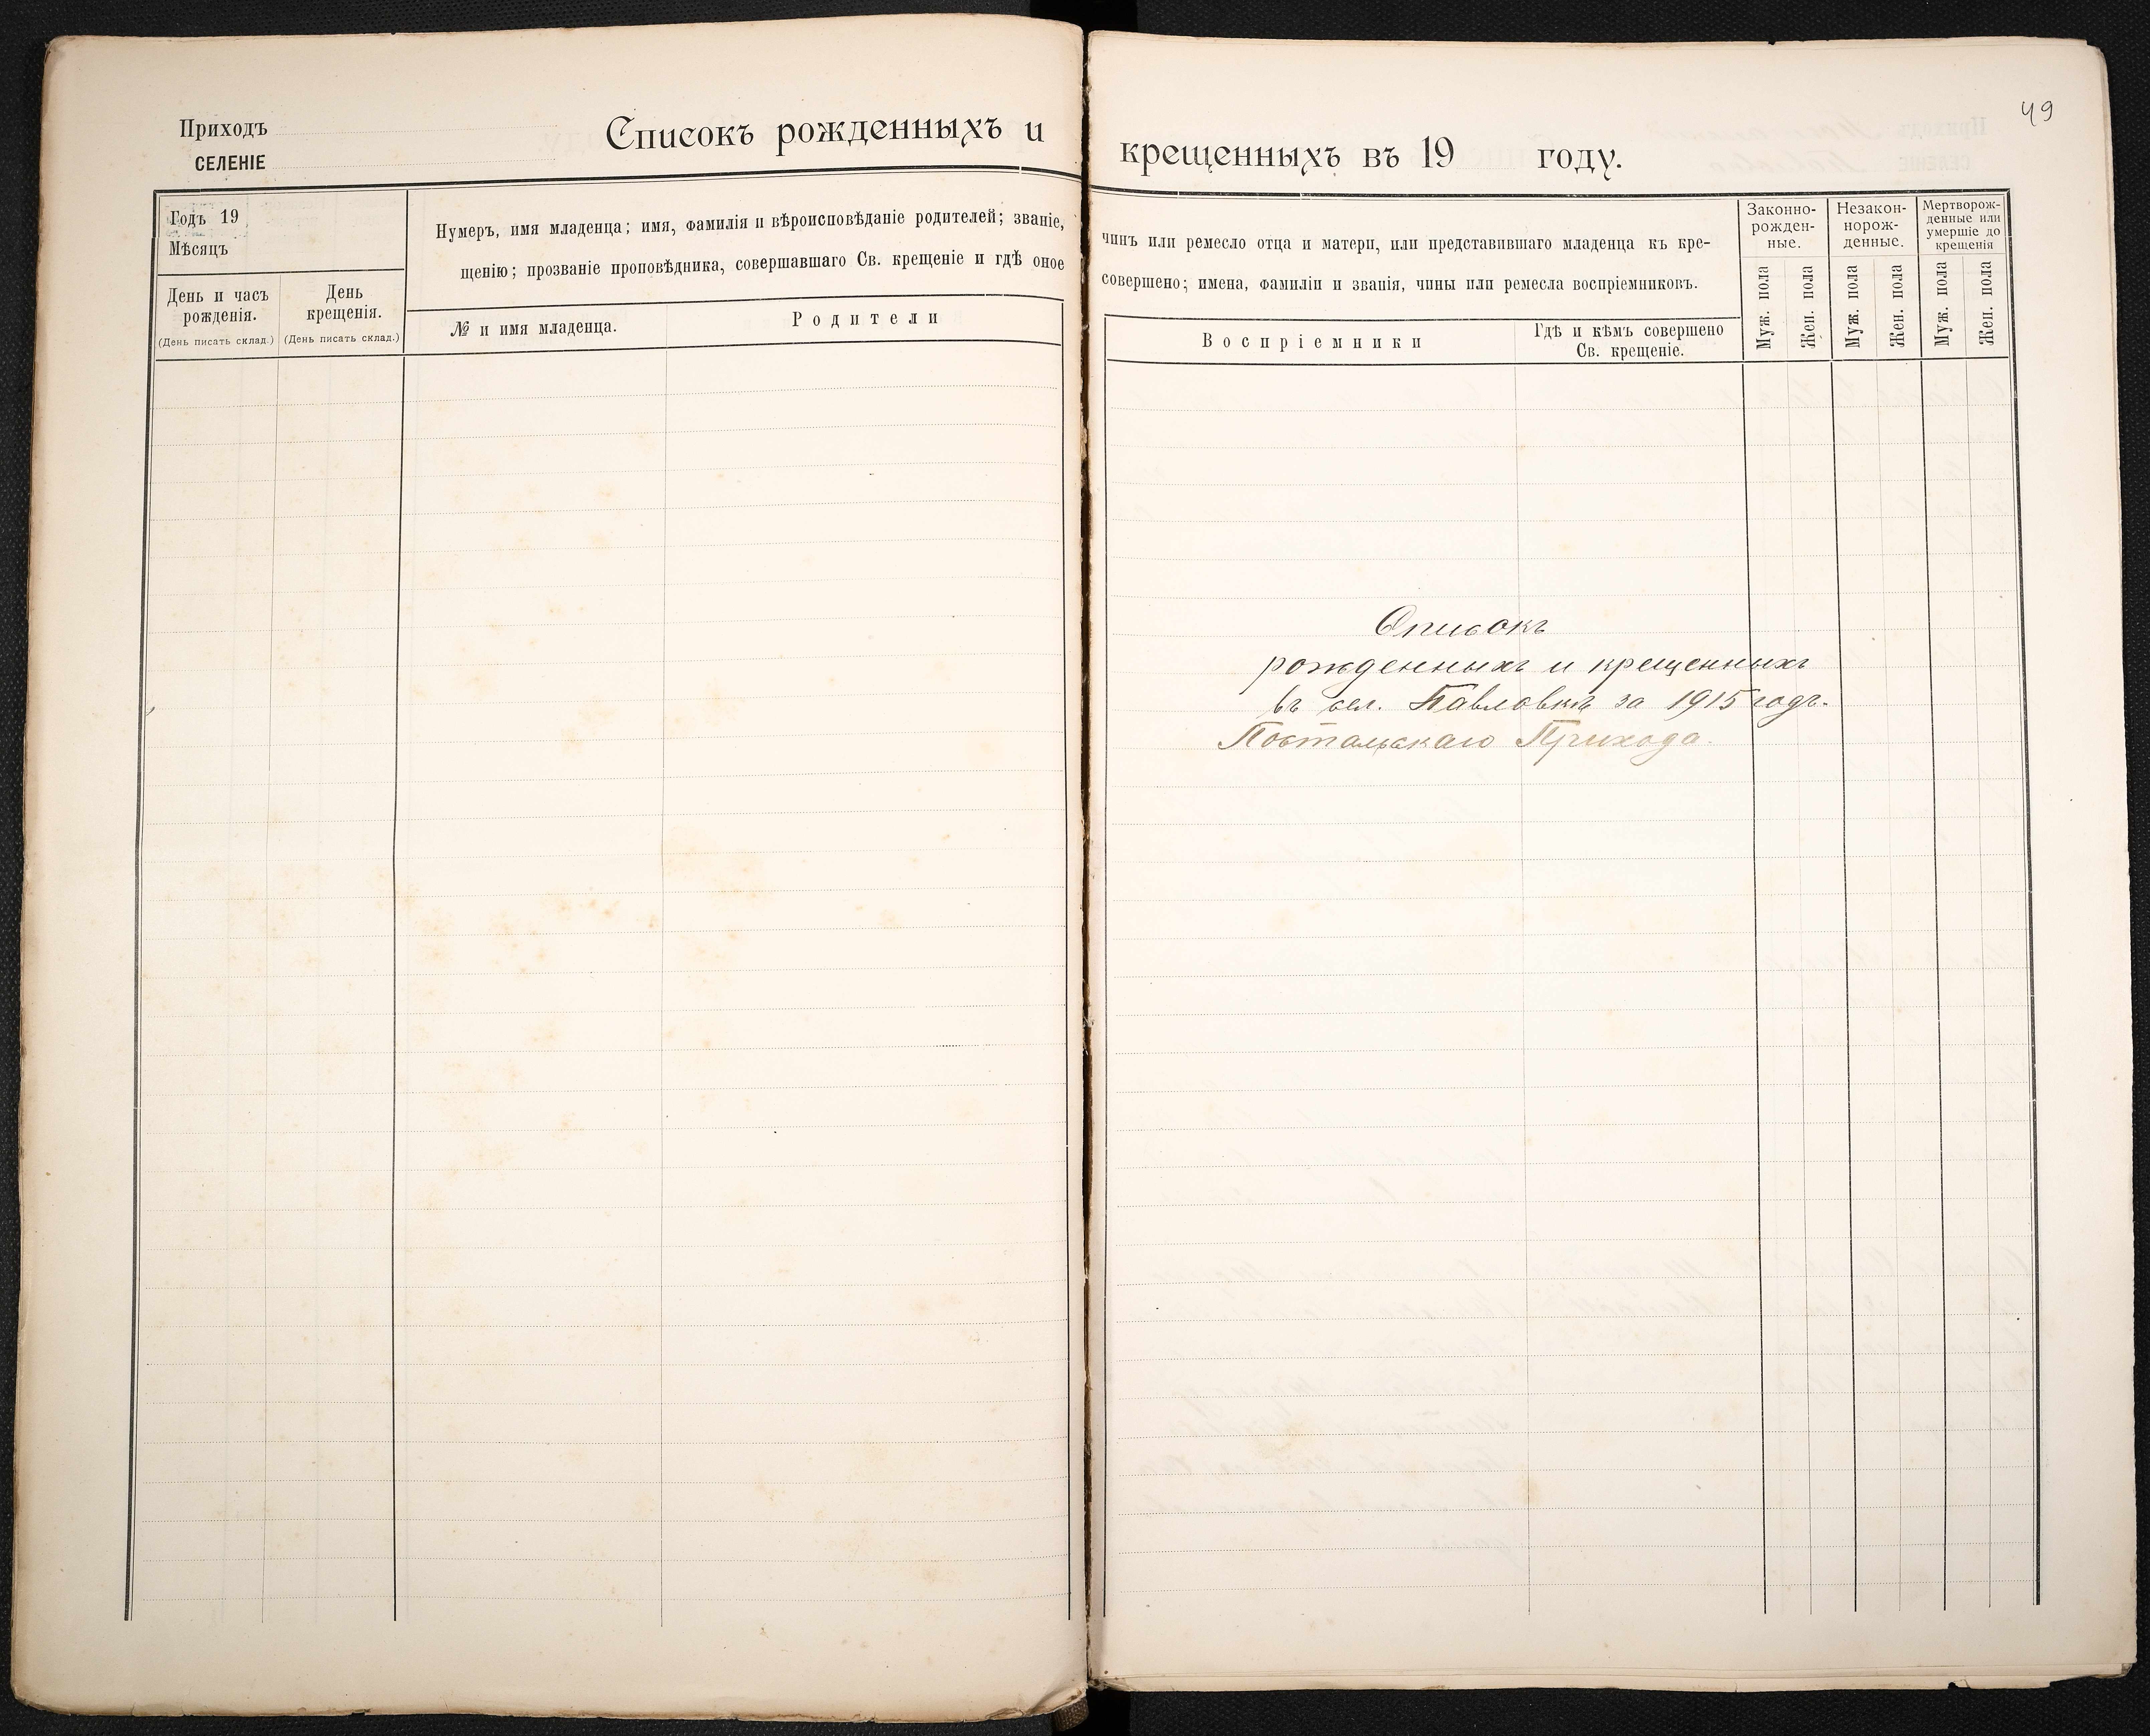 49
Приходъ
СЕЛЕНІЕ
Списокъ рожденныхъ и
Годъ 19
Мѣсяцъ
День и часъ
рожденія.
(День писать склад.)
День
крещенія.
(День писать склад.)
Нумеръ, имя младенца; имя, фамилія и вѣроисповѣданіе родителей; званіе,
щенію; прозваніе проповѣдника, совершавшаго Св. крещеніе и гдѣ оное
№ и имя младенца.
Родители
крещенныхъ въ 19 году.
чинъ или ремесло отца и матери, или представившаго младенца къ кре-
совершено; имена, фамиліи и званія, чины или ремесла воспріемниковъ.
Воспріемники
Гдѣ и кѣмъ совершено
Св. крещеніе.
Законно-
рожден-
ные.
Незакон-
норож-
денные.
Мертворож-
денные или
умершіе до
крещенія
Муж. пола
Жен. пола
Муж. пола
Жен. пола
Муж. пола
Жен. пола
Списокъ
рожденныхъ и крещенныхъ
въ сел. Павловкѣ за 1915 годъ.
Постальскаго Прихода.